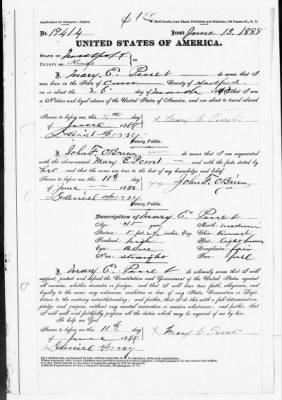 No. 12414 Issued June 13, 1888
UNITED STATES OF AMERICA.
STATE OF New York
COUNTY OF Kings
I, Mary E. Perret do swear that I was
born in the State of Conn County of Hartford
on or about the 26 day of March that I am
a Native and loyal citizen of the United States of America, and am about to travel abroad.
Sworn to before me, this 11th day
of June 1888
Daniel Gerry
Notary Public.
I, John F. O'Brien do swear that I am acquainted
with the above-named Mary E. Perret and with the facts stated by
her and that the same are true to the best of my knowledge and belief.
Sworn to before me, this 11th day
of June 1888
John F. O'Brien
Daniel Gerry
Notary Public.
Description of Mary E. Perret
Age: 45 years Mouth: medium
Stature: 5 feet inches, Eng. Chin: Round
Forehead: high Hair: light brown
Eyes: Blue Complexion: fair
Nose: straight Face: full
I, Mary E. Perret do solemnly swear that I will
support, protect and defend the Constitution and Government of the United States against
all enemies, whether domestic or foreign; and that I will bear true faith, allegiance, and
loyalty to the same, any ordinance, resolution or law of any State, Convention or Legis-
lature to the contrary notwithstanding; and further, that I do this with a full determination,
pledge and purpose, without any mental reservation or evasion whatsoever; and further,
that I will well and faithfully perform all the duties which may be required of me by law.
So help me God.
Sworn to before me, this 11th day
of June 1888
Mary E. Perret
Daniel Gerry